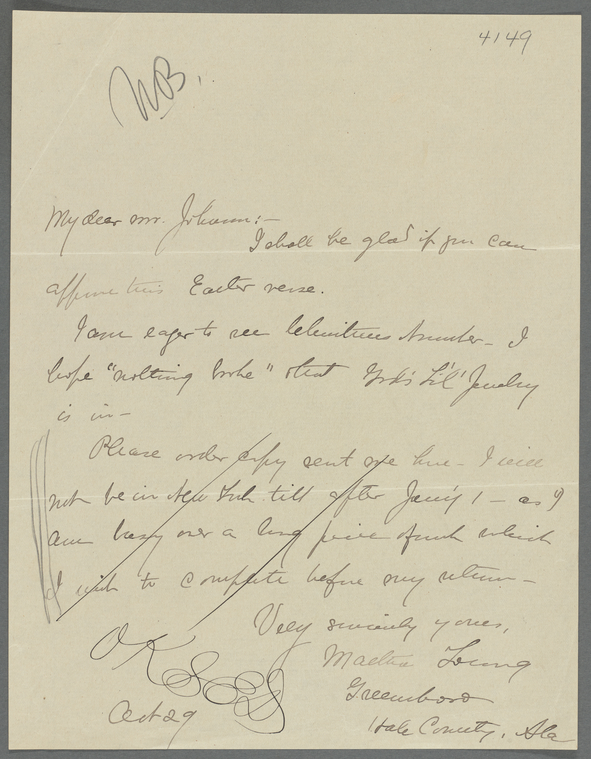 4149
NB.
My dear Mr. Johnson:-
I shall be glad if you can
approve this Easter verse.
I am eager to see Christmas Number - I
hope "nothing broke" & that God's Lil' Jewelry
is in -
Please order copy sent me here - I will
not be in New York till after Jan'y 1 - as I
am busy over a long piece of work which
I wish to complete before my return -
Very sincerely yours,
Martha Young
Greensboro
Hale County, Ala
OK
Oct 29